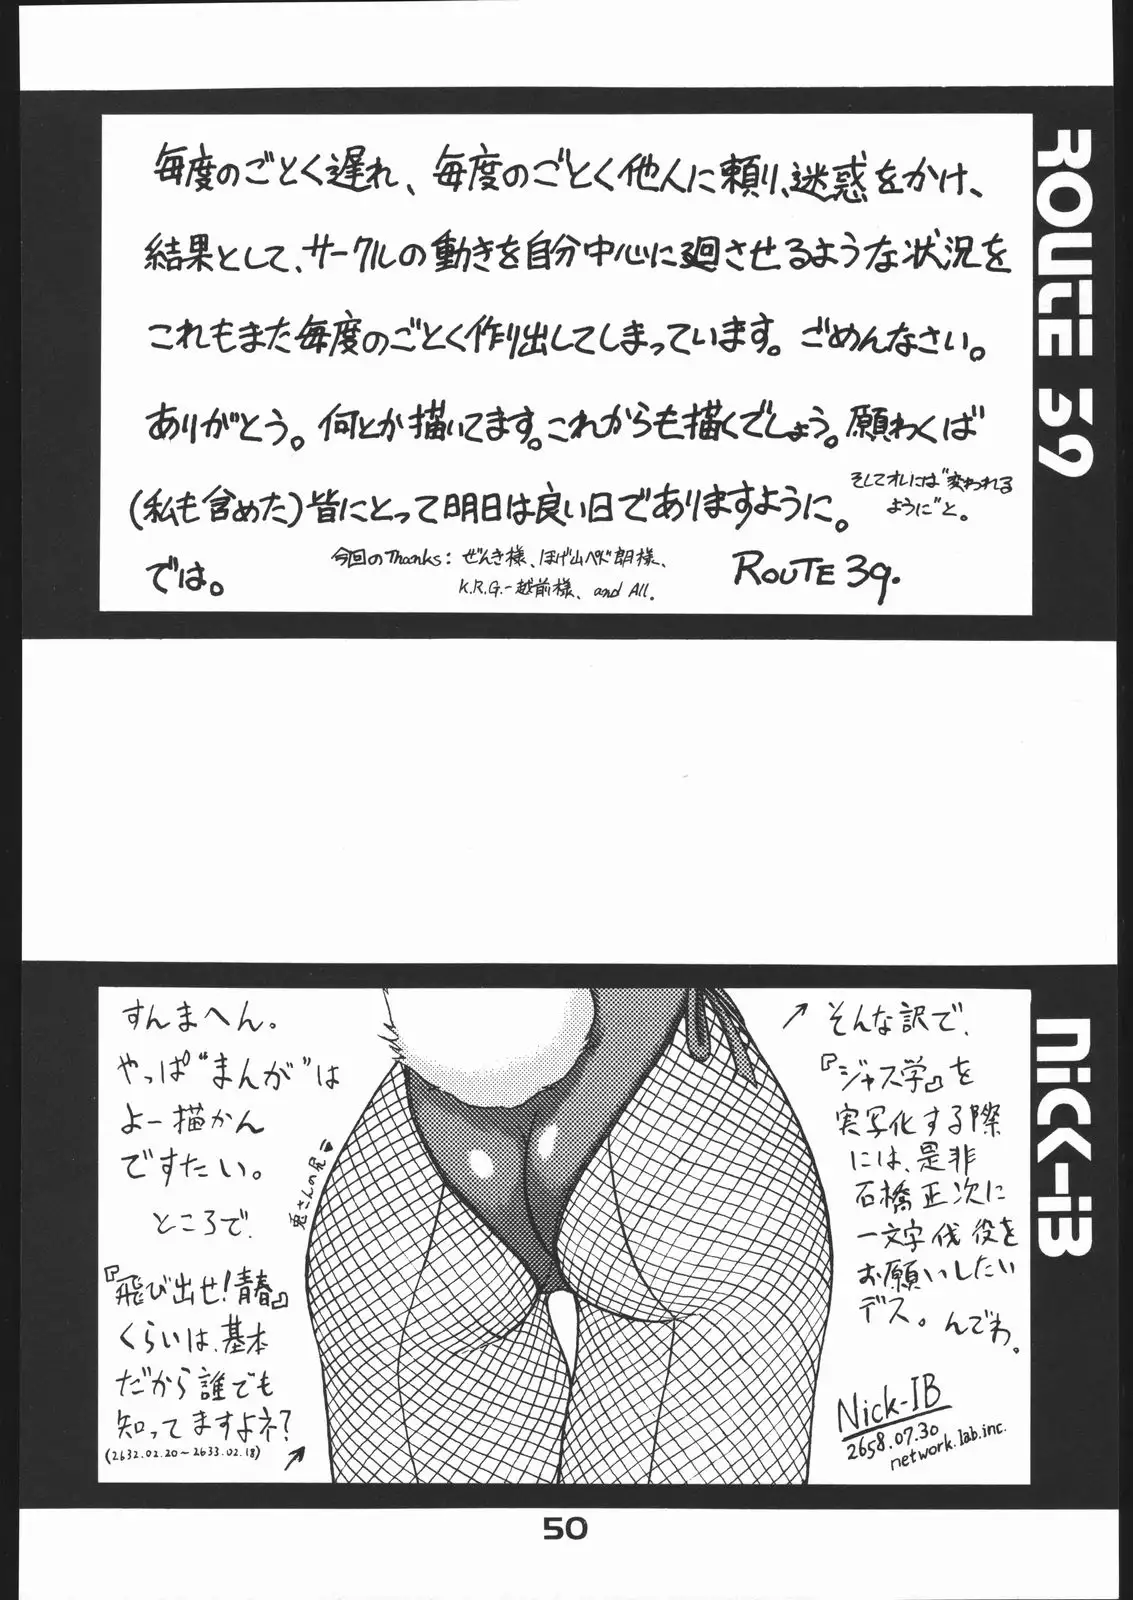 ROUTE 39
毎度のごとく遅れ、毎度のごとく他人に頼り、迷惑をかけ、
結果として、サークルの動きを自分中心に廻させるような状況を
これもまた毎度のごとく作り出してしまっています。ごめんなさい。
ありがとう。何とか描いてます。これからも描くでしょう。願わくば
(私も含めた)皆にとって明日は良い日でありますように。
そしてオレには"変われる
ように"と。
では。
今回のThanks: ぜんき様、ほげ山ペド朗様、
K.R.G.-越前様、and All.
ROUTE 39.
NICK-IB
すんまへん。
やっぱ"まんが"は
よー描かん
ですたい。
ところで、
『飛び出せ!青春』
くらいは、基本
だから誰でも
知ってますよネ?
(2632.02.20~2633.02.18)
兎さんの尻
そんな訳で、
『ジャス学』を
実写化する際
には、是非
石橋正次に
一文字伐役を
お願いしたい
デス。んでわ。
Nick-IB
2658.07.30
network.lab.inc.
50